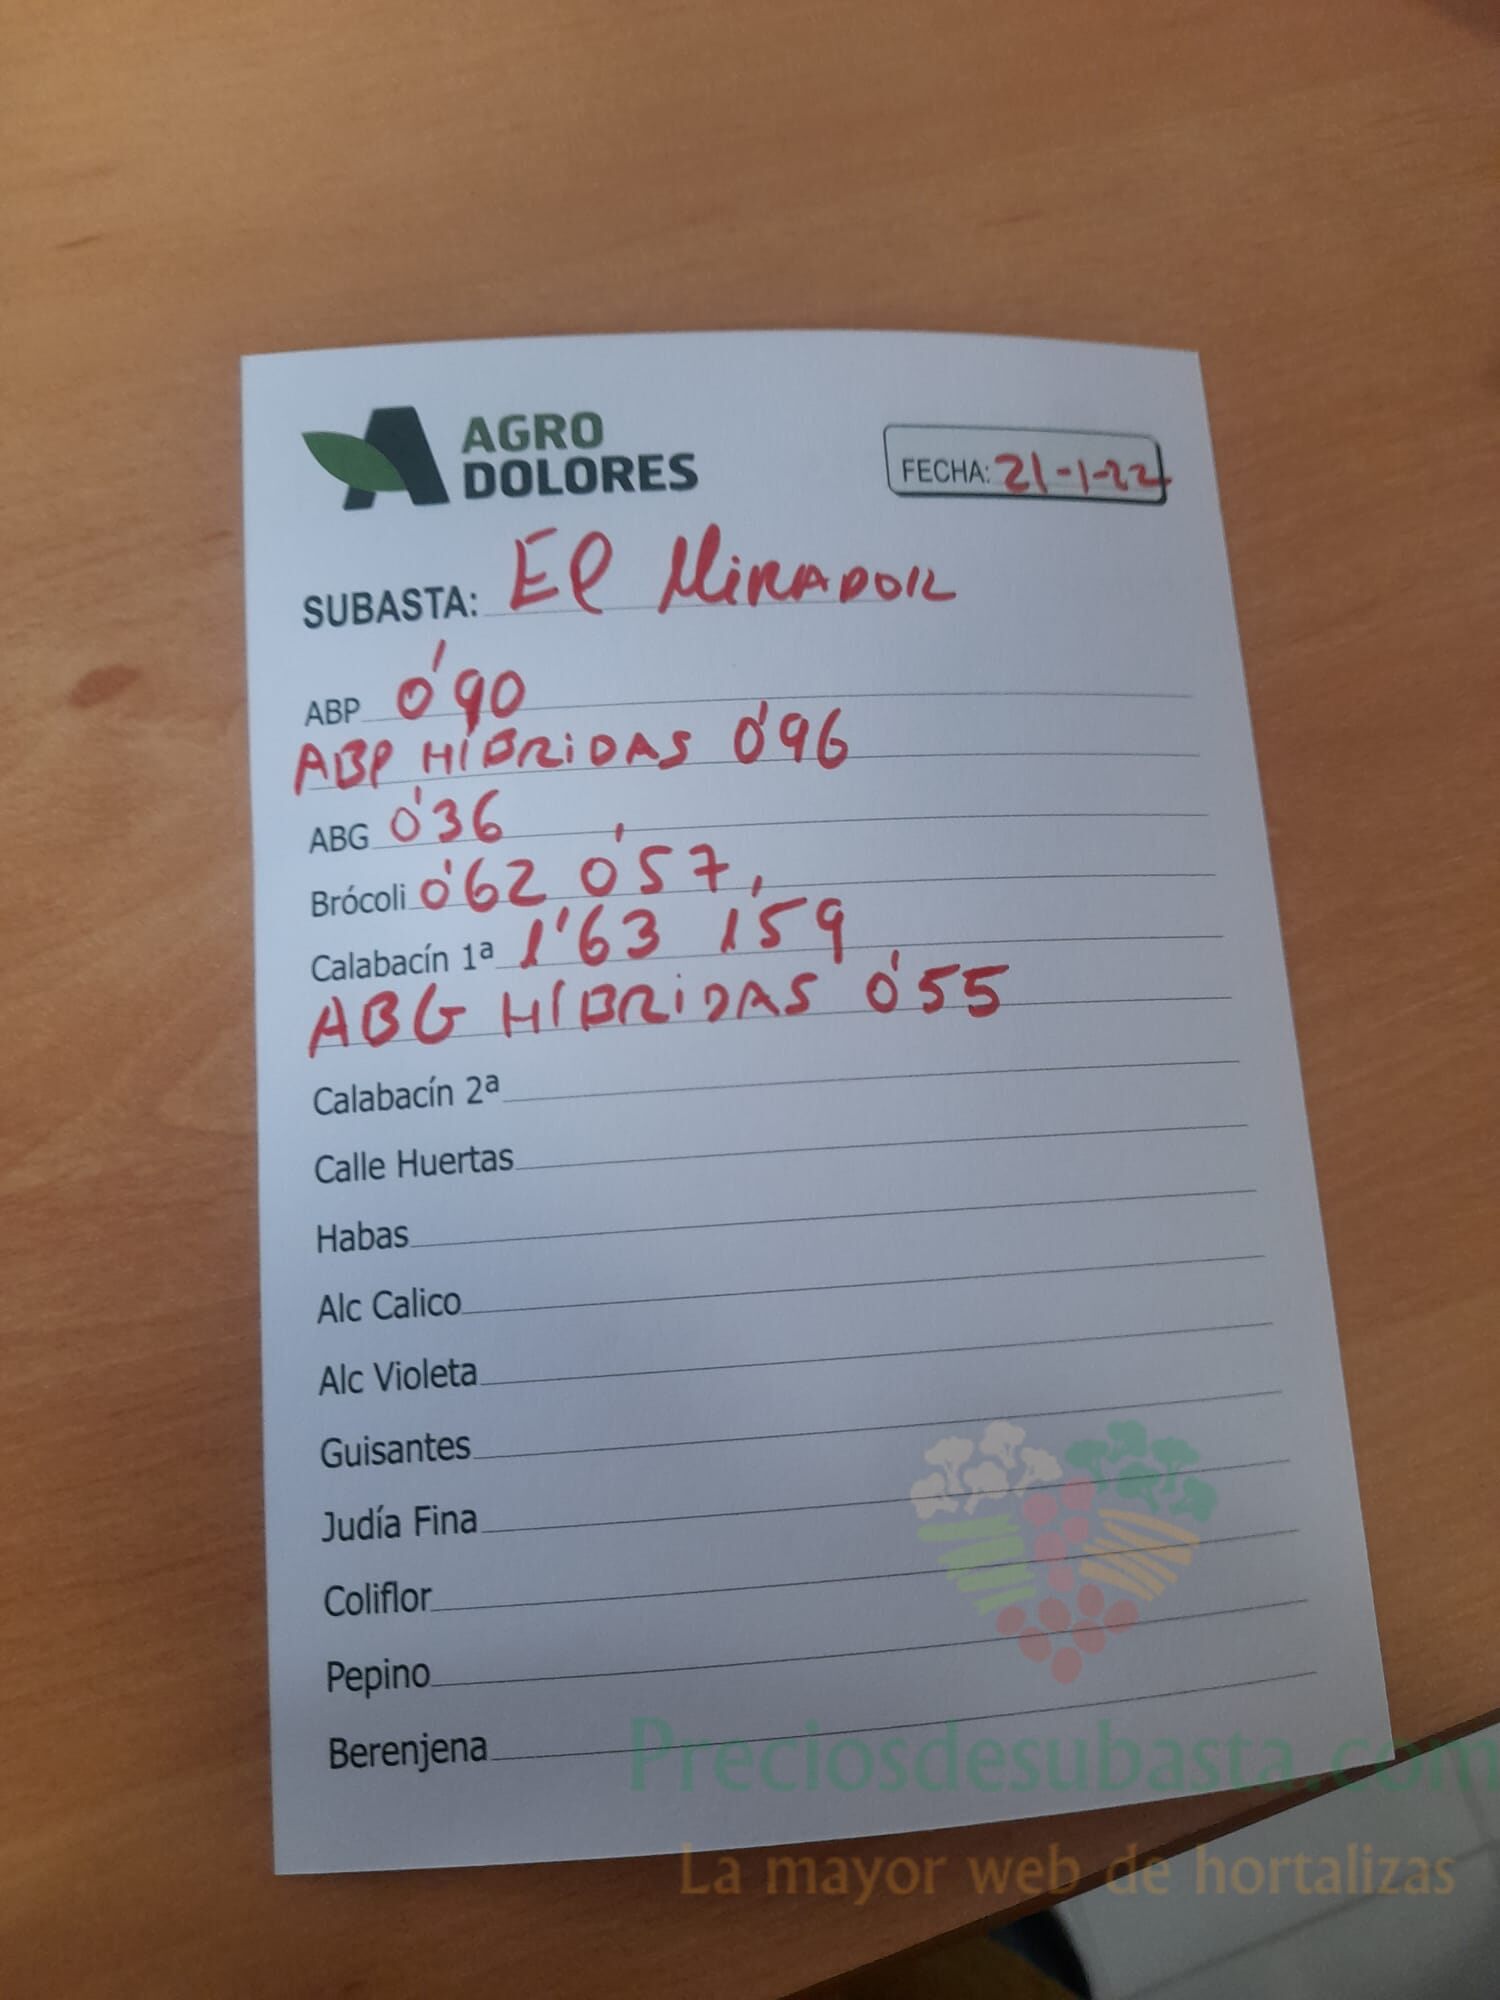 AGRO
DOLORES
FECHA: 21-1-22
SUBASTA: El Mirador
ABP 0'90
ABP HÍBRIDAS 0'96
ABG 0'36
Brócoli 0'62 0'57
Calabacín 1ª 1'63 1'59
ABG HÍBRIDAS 0'55
Calabacín 2ª
Calle Huertas
Habas
Alc Calico
Alc Violeta
Guisantes
Judía Fina
Coliflor
Pepino
Berenjena
Preciosdesubasta.com
La mayor web de hortalizas